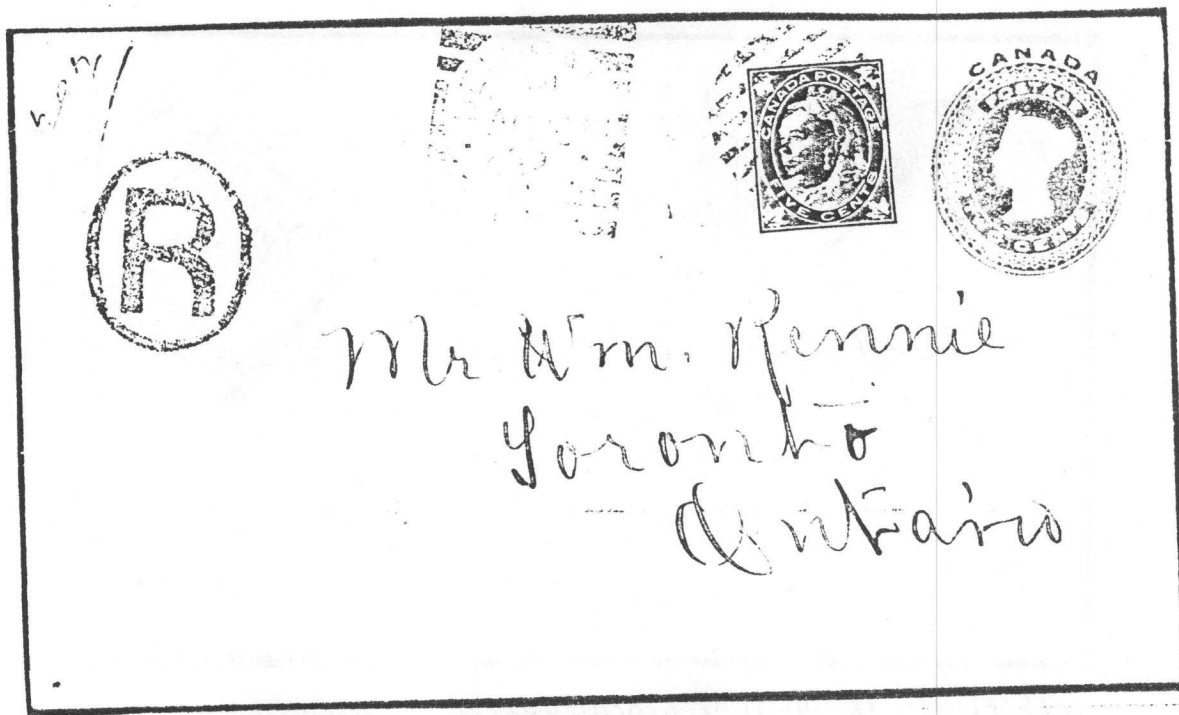 R
CANADA POSTAGE
FIVE CENTS
CANADA
POSTAGE
CENTS
Mr Wm. Rennie
Toronto
Ontario